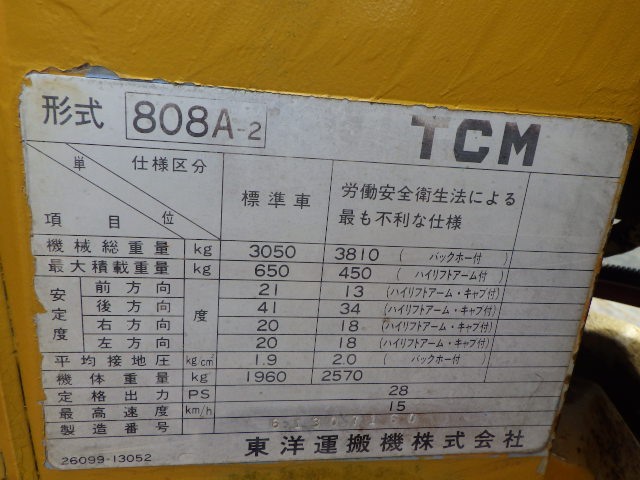 形式 808A-2 TCM
単位 仕様区分
項目
標準車
労働安全衛生法による
最も不利な仕様
機械総重量 kg 3050 3810 (バックホー付)
最大積載重量 kg 650 450 (ハイリフトアーム付)
安定度 前方向 度 21 13 (ハイリフトアーム・キャブ付)
後方向 41 34 (ハイリフトアーム・キャブ付)
右方向 20 18 (ハイリフトアーム・キャブ付)
左方向 20 18 (ハイリフトアーム・キャブ付)
平均接地圧 kg/cm² 1.9 2.0 (バックホー付)
機体重量 kg 1960 2570
定格出力 PS 28
最高速度 km/h 15
製造番号
東洋運搬機株式会社
26099-13052